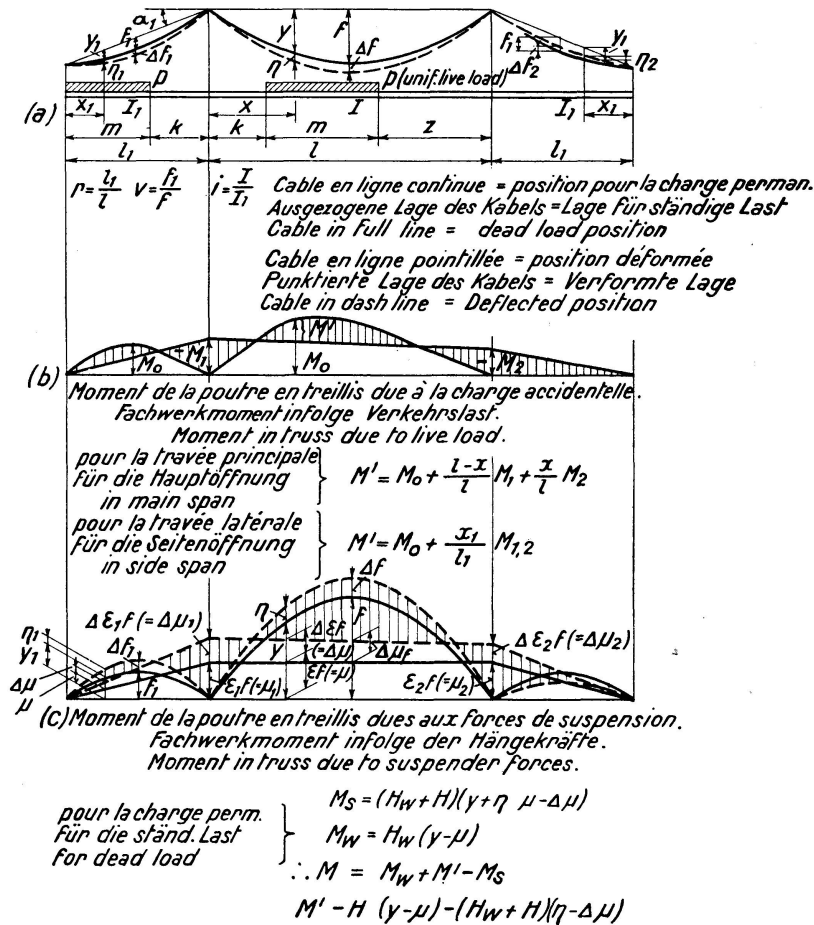 α₁ y f
y₁ f₁ Δf₁ η₁ η Δf f₁ Δf₂ y₁ η₂
p p (unif. live load)
(a) x₁ I₁ x I I₁ x₁
m k k m z
l₁ l l₁
r = l₁/l v = f₁/f i = I/I₁ Cable en ligne continue = position pour la charge perman.
Ausgezogene Lage des Kabels = Lage für ständige Last
Cable in full line = dead load position
Cable en ligne pointillée = position déformée
Punktierte Lage des Kabels = Verformte Lage
Cable in dash line = Deflected position
M₀ -M₁ M' M₀ -M₂
(b)
Moment de la poutre en treillis due à la charge accidentelle.
Fachwerkmoment infolge Verkehrslast.
Moment in truss due to live load.
pour la travée principale
für die Hauptöffnung
in main span
} M' = M₀ + (l-x)/l M₁ + x/l M₂
pour la travée latérale
für die Seitenöffnung
in side span
} M' = M₀ + x₁/l₁ M₁,₂
Δf
η f
Δε₁f (=Δμ₁) Δεf (=Δμ) Δμf Δε₂f (=Δμ₂)
η₁ y₁ Δμ μ Δf₁ f₁ ε₁f (=μ₁) y εf (=μ) ε₂f (=μ₂)
(c) Moment de la poutre en treillis dues aux forces de suspension.
Fachwerkmoment infolge der Hängekräfte.
Moment in truss due to suspender forces.
pour la charge perm.
für die ständ. Last
for dead load
}
M_S = (H_W + H)(y + η μ - Δμ)
M_W = H_W (y - μ)
∴ M = M_W + M' - M_S
M' - H (y - μ) - (H_W + H)(η - Δμ)